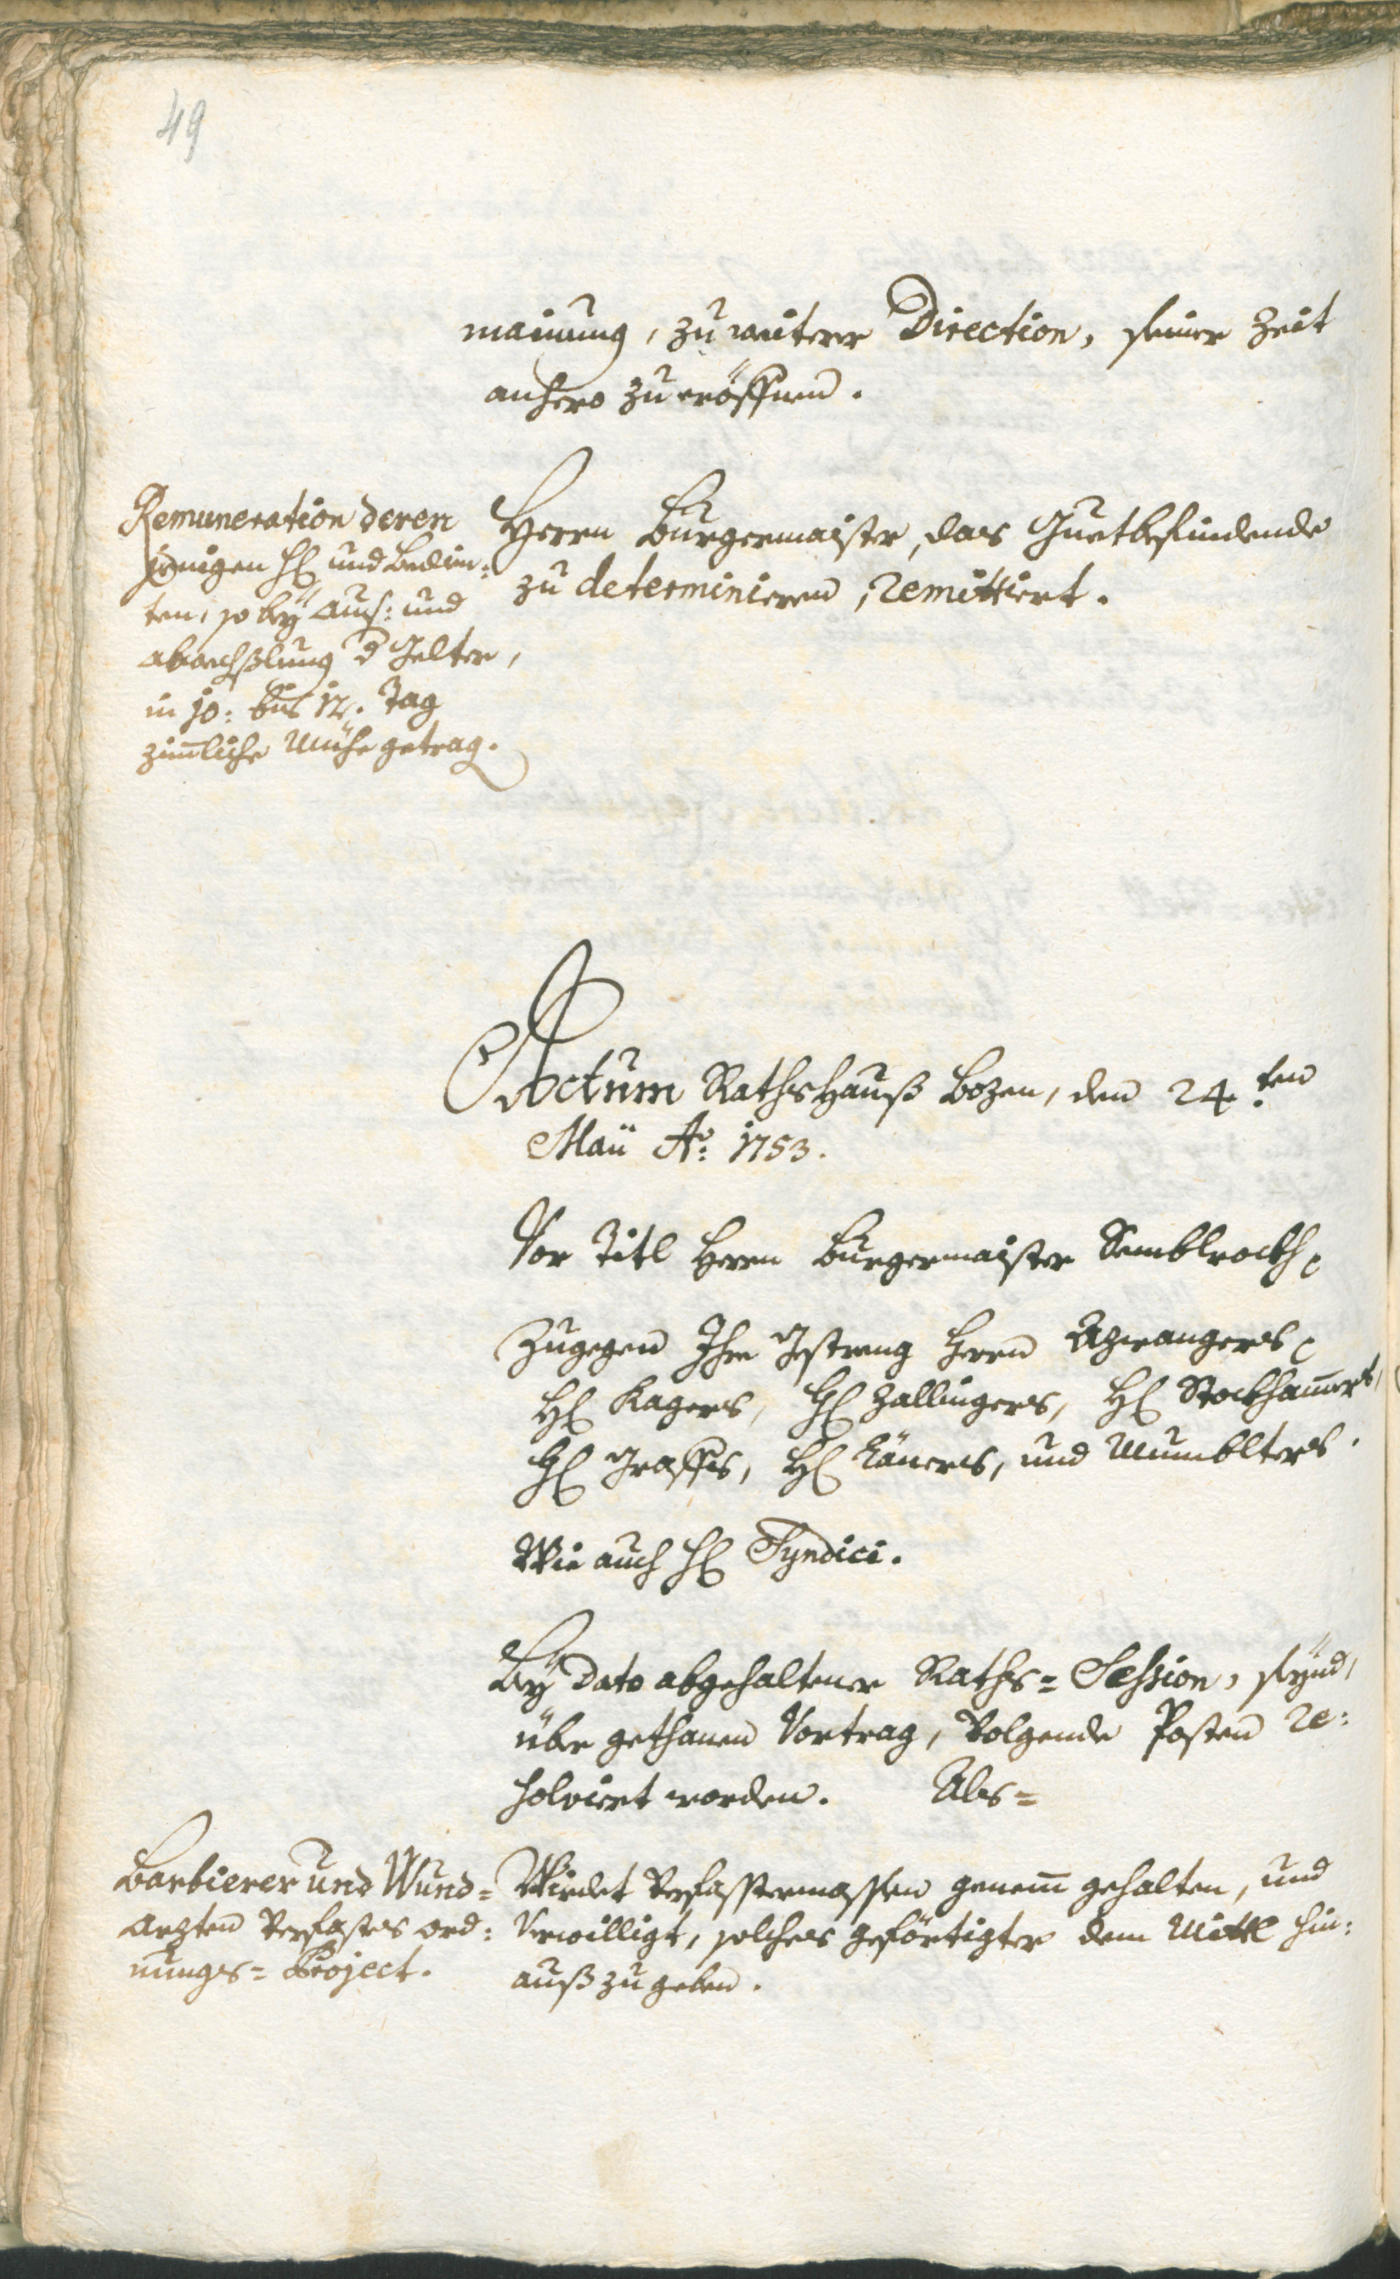 49
mainung, zu weiterer Direction, seiner Zeit
anhero zu eröffnen.
Remuneration deren
jenigen H und Bedien:
ten, so bey Auß: und
abwechßlung d Gelter,
in 10: bis 12. Tag
zimliche Mühe getrag.
Herrn Burgermaister, das Guetbefindende
zu determinieren, remittiert.
Actum Rathshauß Bozen, den 24.ten
Maii Ao: 1753.
Vor Titl Herrn Burgermaister
Zugegen Ihr Gestreng Herrn Azwangers,
H Kagers, H Zallingers, H Stockhamers,
H Graffs, H und Mumblters.
Wie auch H Syndici.
Bey dato abgehaltener Raths= Session, seynd,
über gethanen Vortrag, Volgende Posten re:
solviert worden. Als=
Barbierer und Wund=
Arzten Verfastes Ord:
nungs= Project.
Wirdet Verfasstermassen genem gehalten, und
Verwilligt, solches geförtigter dem Mittl hin:
auß zu geben.